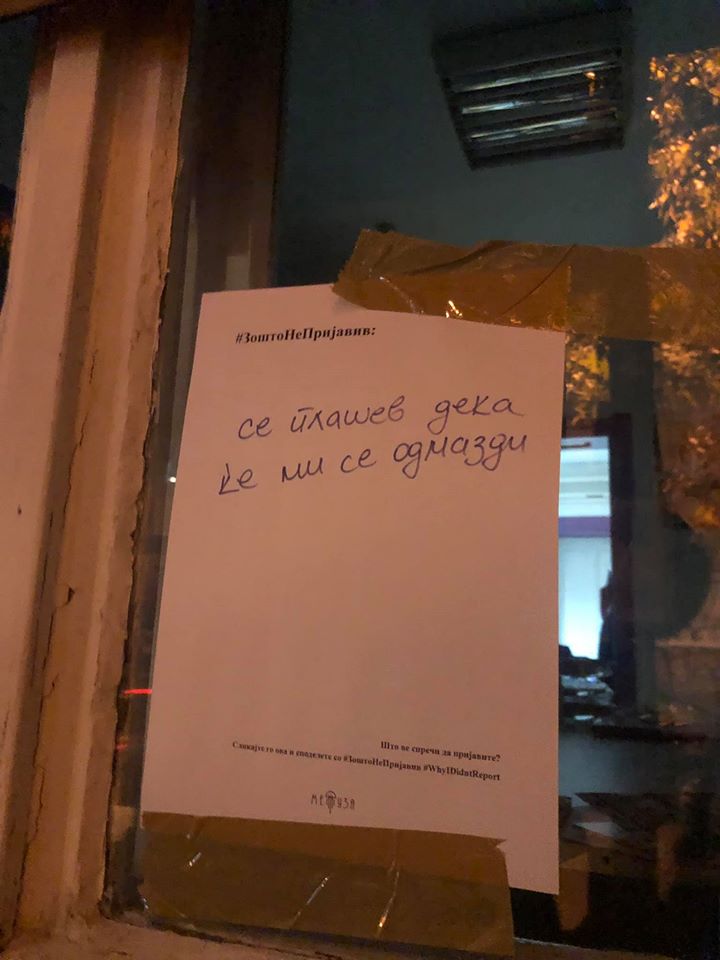 #ЗоштоНеПријавив:
се плашев дека
ќе ми се одмазди
Што ве спречи да пријавите?
Сликајте го ова и споделете со #ЗоштоНеПријавив #WhyIDidntReport
МЕДУЗА